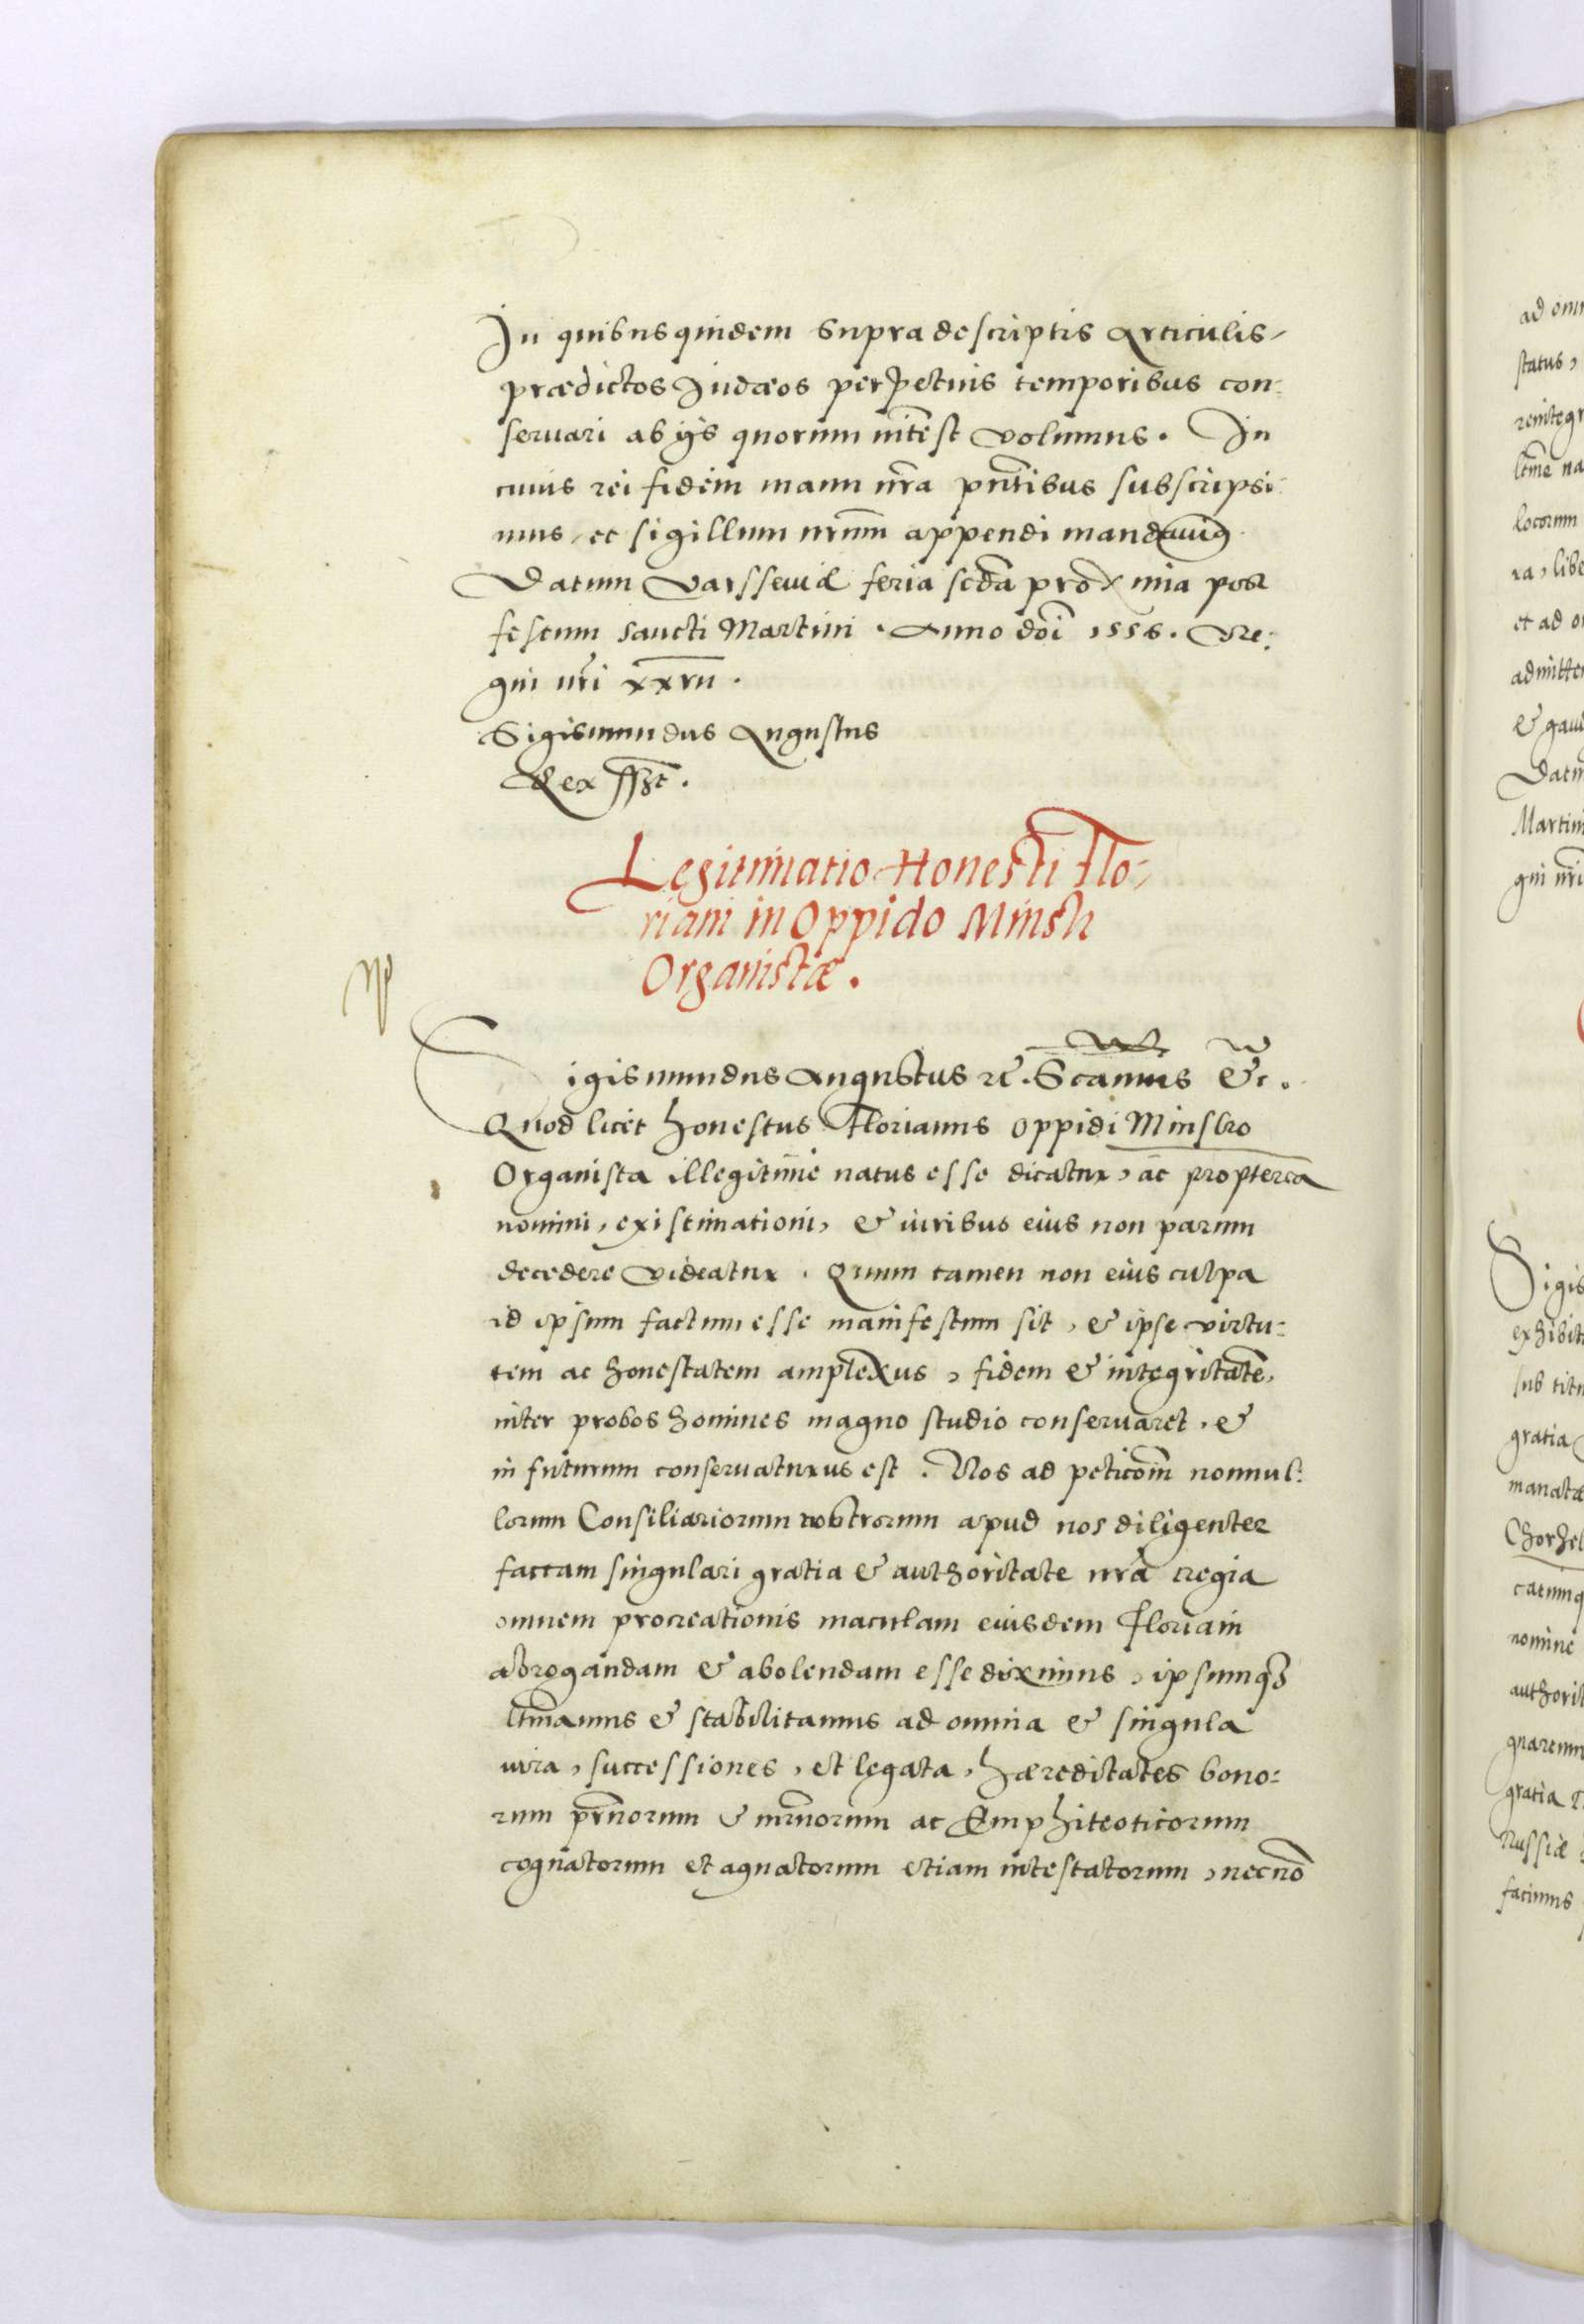 In quibusquidem supradescriptis Articulis
prædictos Iudæos perpetuis temporibus con:
seruari ab ijs quorum intest volumus. In
cuius rei fidem manu nra pntibus subscripsi:
mus, et sigillum nrum appendi mandauimus.
Datum Varssewiæ feria scda proxima post
festum sancti Martini. Anno doi 1556. Re:
gni nri xxvii.
Sigismundus Augustus
Rex sszt.
Legitimatio Honesti Flo:
riani in Oppido Minsk
Organistæ.
Sigismundus Augustus rc. Scamus &c.
Quod licet honestus Florianus oppidi Minsko
Organista illegitime natus esse dicatur, ac propterea
nomini, existimationi, & iuribus eius non parum
decedere videatur. Quum tamen non eius culpa
id ipsum factum esse manifestum sit, & ipse virtu:
tem ac honestatem amplexus, fidem & integritate,
inter probos homines magno studio conseruaret, &
in futurum conseruaturus est. Nos ad peticoin nonnul:
lorum Consiliariorum nostrorum apud nos diligenter
factam singulari gratia & authoritate nra regia
omnem procreationis maculam eiusdem Floriani
abrogandam & abolendam esse diximus, ipsumq3
ltmamus & stabilitamus ad omnia & singula
iura, successiones, et legata, hæreditates bono:
rum prnorum & mrnorum ac Emphiteoticorum
cognatorum et agnatorum etiam intestatorum, necno
ad om
status,
reintegr
ltme na
locorum
ra, libe
et ad o
admitte
& gau
Datu
Martin
gni nri
Sigis
exhibit
sub titu
gratia
manatæ
Chorzel
catumq
nomine
authorit
quarum
gratia
Russiæ
facimus